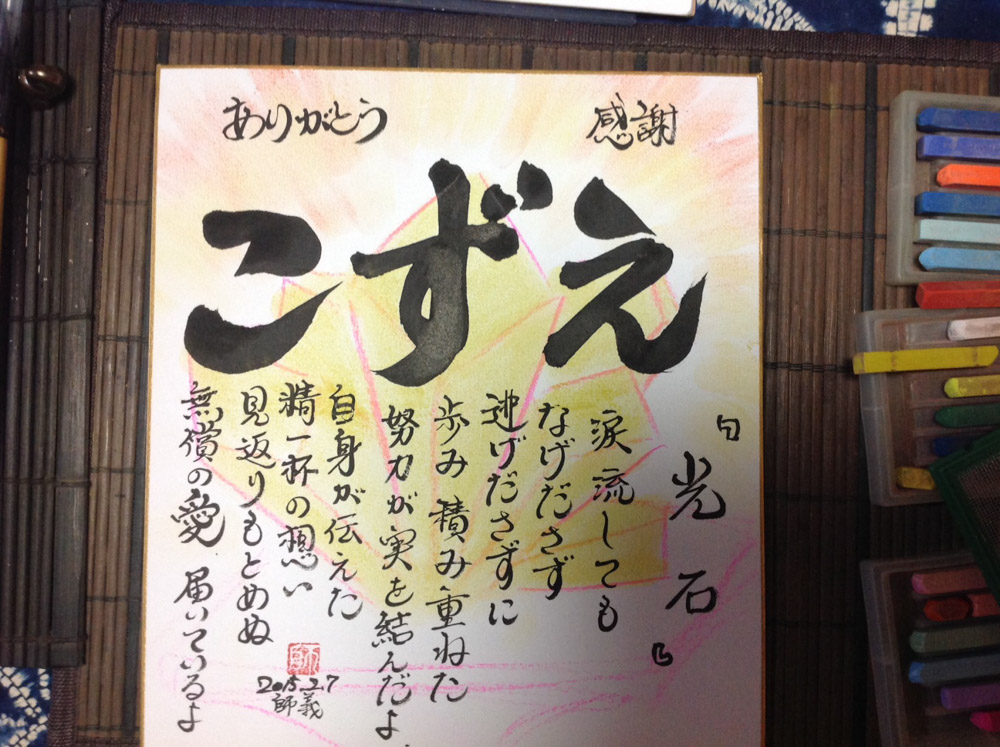 ありがとう
感謝
こずえ
「光石」
涙流しても
なげださず
逃げださずに
歩み積み重ねた
努力が実を結んだよ、
自身が伝えた
精一杯の想い
見返りもとめぬ
無償の愛 届いているよ
師
2015.2.7
師義